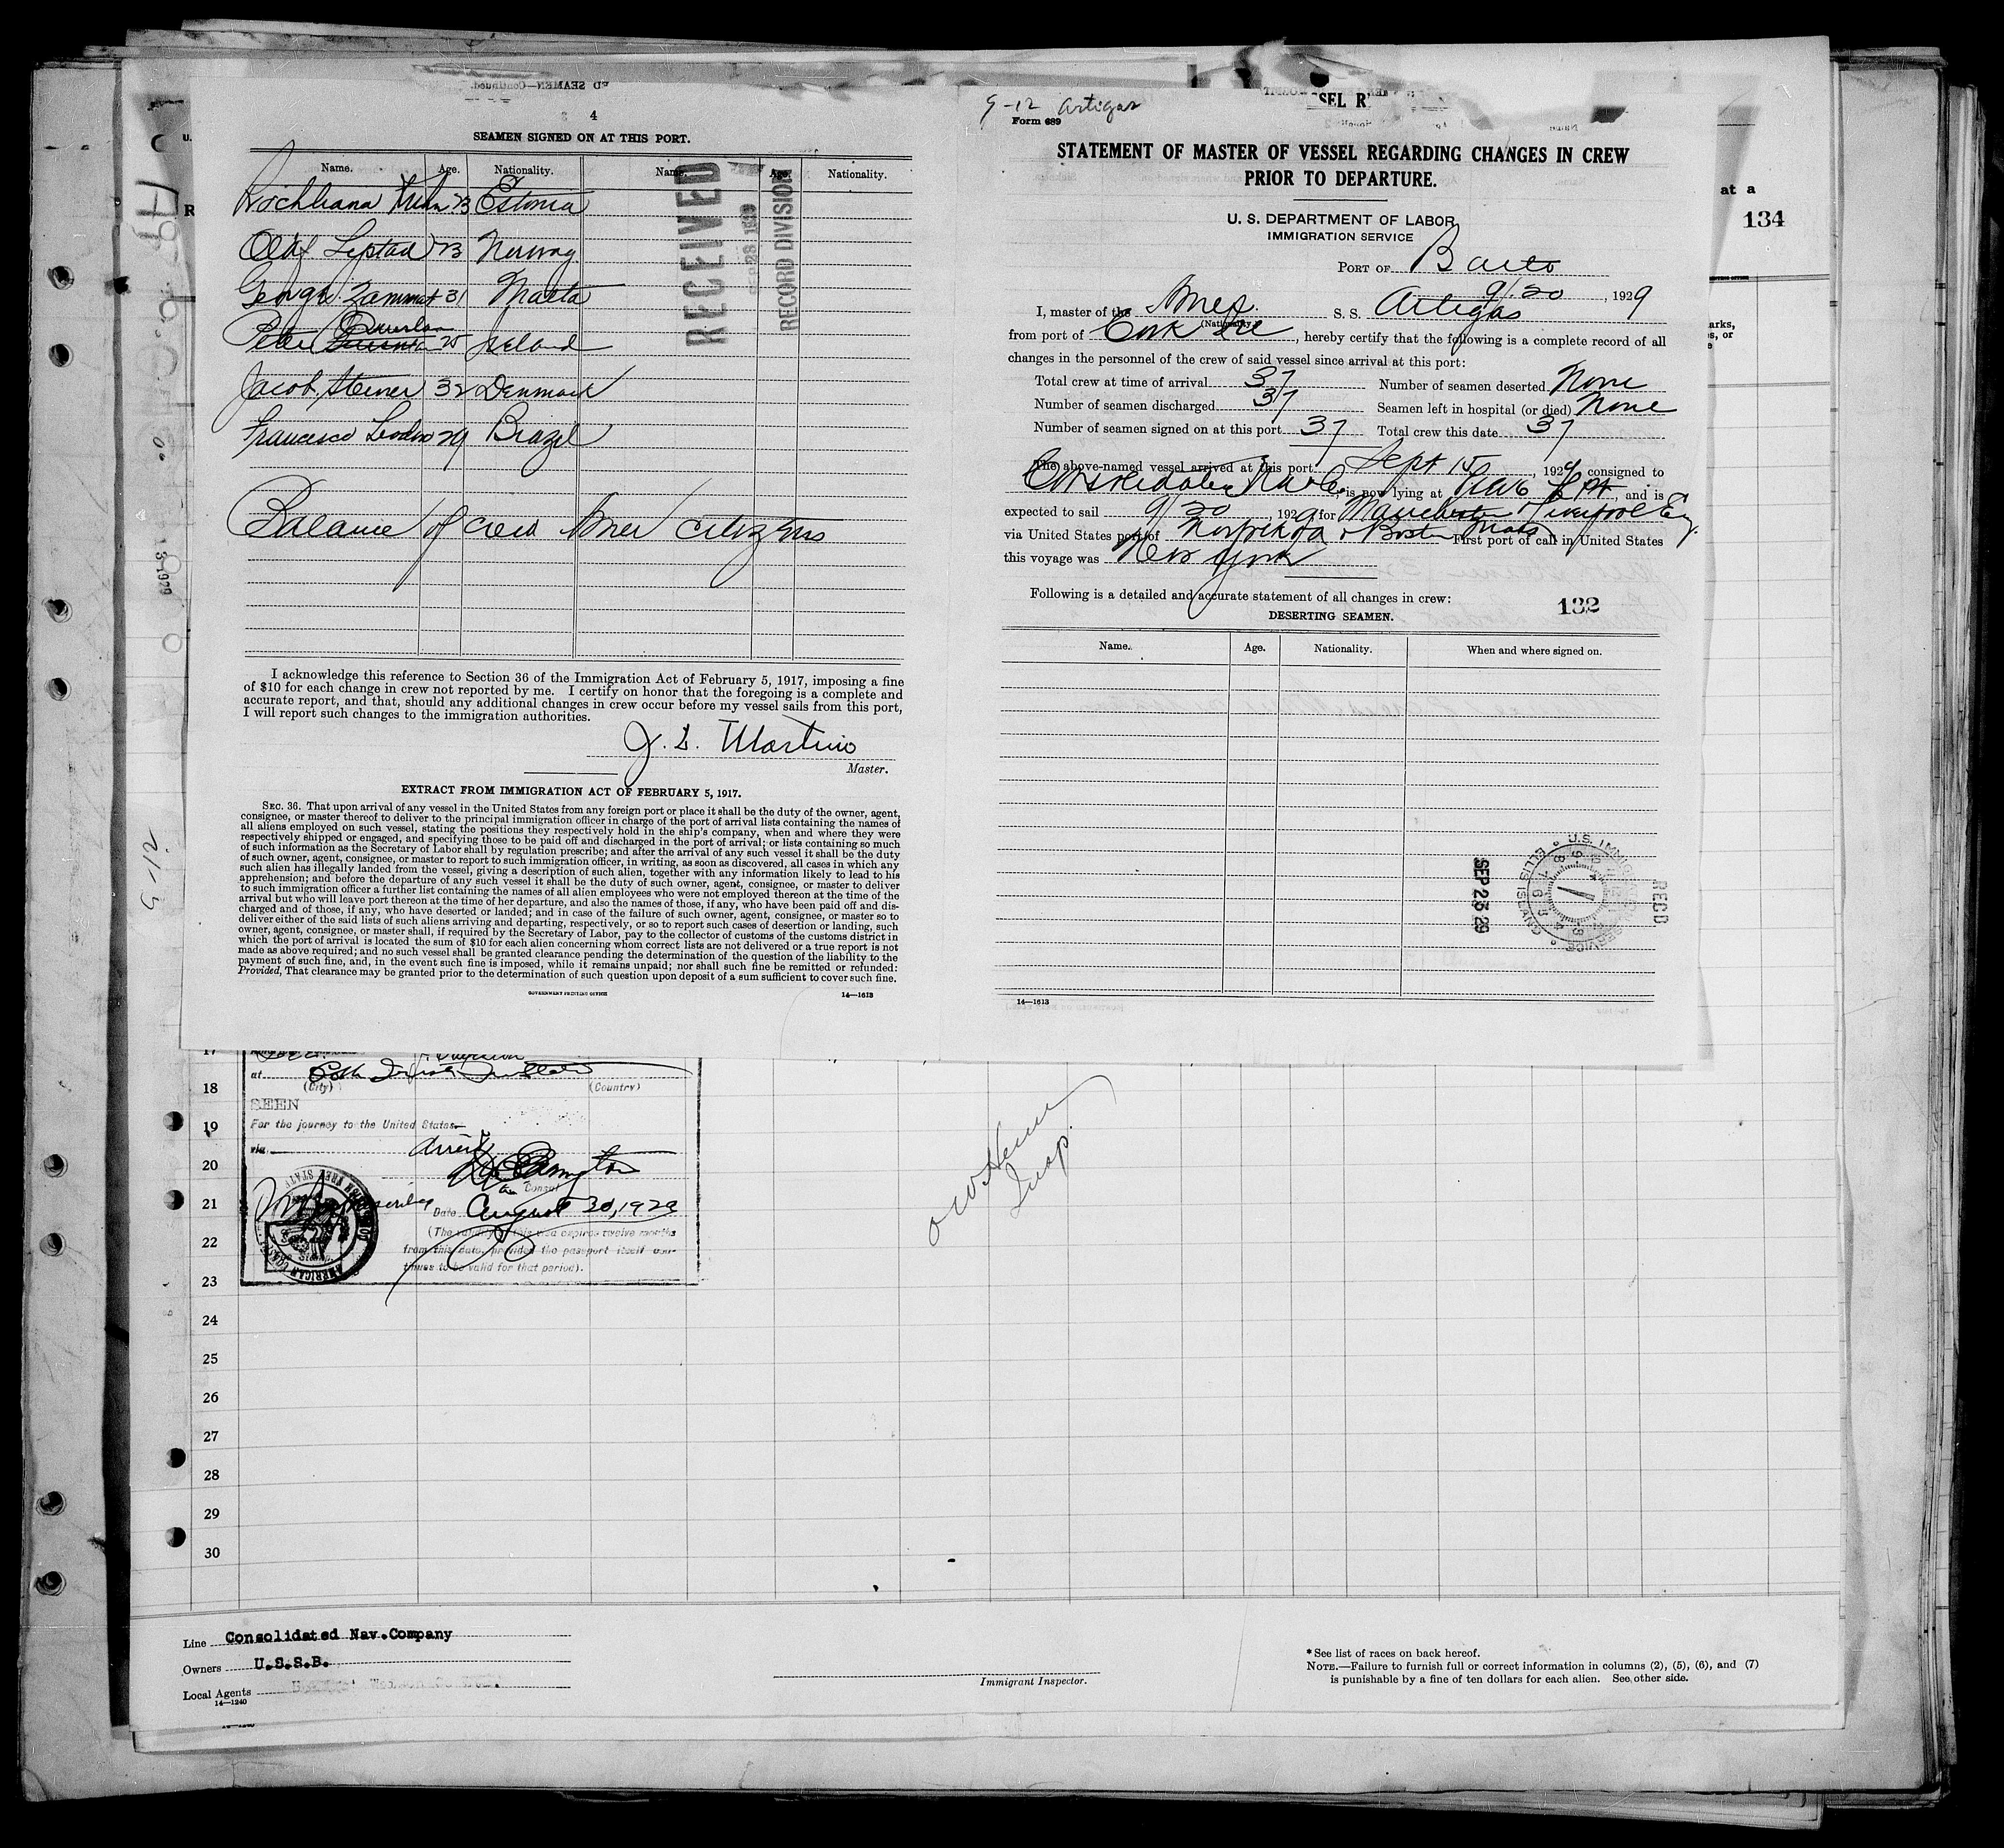 4
SEAMEN SIGNED ON AT THIS PORT.
Name. Age. Nationality. Name. Age. Nationality.
23 Estonia
Olaf 23 Norway
George Zammit 31 Malta
Peter 25 Ireland
Jacob Steiner 32 Denmark
Francesco 29 Brazil
Balance of crew Amer citizens
RECEIVED
RECORD DIVISION
I acknowledge this reference to Section 36 of the Immigration Act of February 5, 1917, imposing a fine
of $10 for each change in crew not reported by me. I certify on honor that the foregoing is a complete and
accurate report, and that, should any additional changes in crew occur before my vessel sails from this port,
I will report such changes to the immigration authorities.
J. L. Martino
Master.
EXTRACT FROM IMMIGRATION ACT OF FEBRUARY 5, 1917.
SEC. 36. That upon arrival of any vessel in the United States from any foreign port or place it shall be the duty of the owner, agent,
consignee, or master thereof to deliver to the principal immigration officer in charge of the port of arrival lists containing the names of
all aliens employed on such vessel, stating the positions they respectively hold in the ship's company, when and where they were
respectively shipped or engaged, and specifying those to be paid off and discharged in the port of arrival; or lists containing so much
of such information as the Secretary of Labor shall by regulation prescribe; and after the arrival of any such vessel it shall be the duty
of such owner, agent, consignee, or master to report to such immigration officer, in writing, as soon as discovered, all cases in which any
such alien has illegally landed from the vessel, giving a description of such alien, together with any information likely to lead to his
apprehension; and before the departure of any such vessel it shall be the duty of such owner, agent, consignee, or master to deliver
to such immigration officer a further list containing the names of all alien employees who were not employed thereon at the time of the
arrival but who will leave port thereon at the time of her departure, and also the names of those, if any, who have been paid off and dis-
charged and of those, if any, who have deserted or landed; and in case of the failure of such owner, agent, consignee, or master so to
deliver either of the said lists of such aliens arriving and departing, respectively, or so to report such cases of desertion or landing, such
owner, agent, consignee, or master shall, if required by the Secretary of Labor, pay to the collector of customs of the customs district in
which the port of arrival is located the sum of $10 for each alien concerning whom correct lists are not delivered or a true report is not
made as above required; and no such vessel shall be granted clearance pending the determination of the question of the liability to the
payment of such fine, and, in the event such fine is imposed, while it remains unpaid; nor shall such fine be remitted or refunded:
Provided, That clearance may be granted prior to the determination of such question upon deposit of a sum sufficient to cover such fine.
GOVERNMENT PRINTING OFFICE 14—1613
9-12 Artigas
Form 689
STATEMENT OF MASTER OF VESSEL REGARDING CHANGES IN CREW
PRIOR TO DEPARTURE.
U. S. DEPARTMENT OF LABOR
IMMIGRATION SERVICE
PORT OF Balto
9/20, 1929
I, master of the Amer. S. S. Artigas
(Nationality)
from port of Cork Ire, hereby certify that the following is a complete record of all
changes in the personnel of the crew of said vessel since arrival at this port:
Total crew at time of arrival 37 Number of seamen deserted None
Number of seamen discharged 37 Seamen left in hospital (or died) None
Number of seamen signed on at this port 37 Total crew this date 37
The above-named vessel arrived at this port Sept 15, 1929 consigned to
Consolidated Nav Co, is now lying at, and is
expected to sail 9/20, 1929 for Manchester Liverpool Eng.
via United States port of Norfolk Va & Boston Mass First port of call in United States
this voyage was New York
Following is a detailed and accurate statement of all changes in crew:
132
DESERTING SEAMEN.
Name. Age. Nationality. When and where signed on.
U.S. IMMIGRATION SERVICE
ELLIS ISLAND
SEP 23 29
REC'D
14—1613
at a
134
17
at
18 (City) (Country)
SEEN
19 For the journey to the United States
via direct
20
Consul
21 Date August 30, 1929
22 (The validity of this visa expires twelve months
from this date, provided the passport itself con-
23 tinues to be valid for that period).
24
25
26
27
28
29
30
Insp.
Line Consolidated Nav.Company
Owners U.S.S.B.
Local Agents
14—1240
Immigrant Inspector.
* See list of races on back hereof.
NOTE.—Failure to furnish full or correct information in columns (2), (5), (6), and (7)
is punishable by a fine of ten dollars for each alien. See other side.